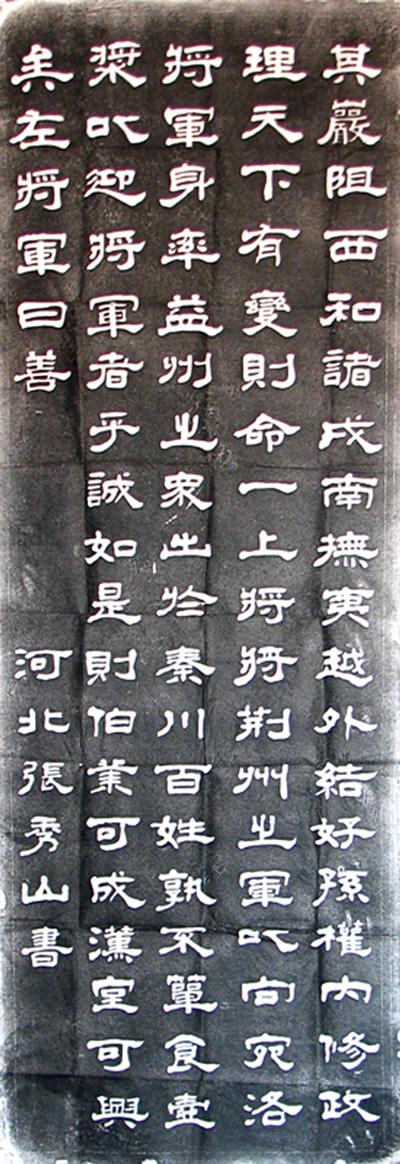 其巖阻西和諸戎南撫夷越外結好孫權內修政
理天下有變則命一上將將荊州之軍以向宛洛
將軍身率益州之眾出於秦川百姓孰不簞食壺
漿以迎將軍者乎誠如是則伯業可成漢室可興
矣左將軍曰善 河北張秀山書